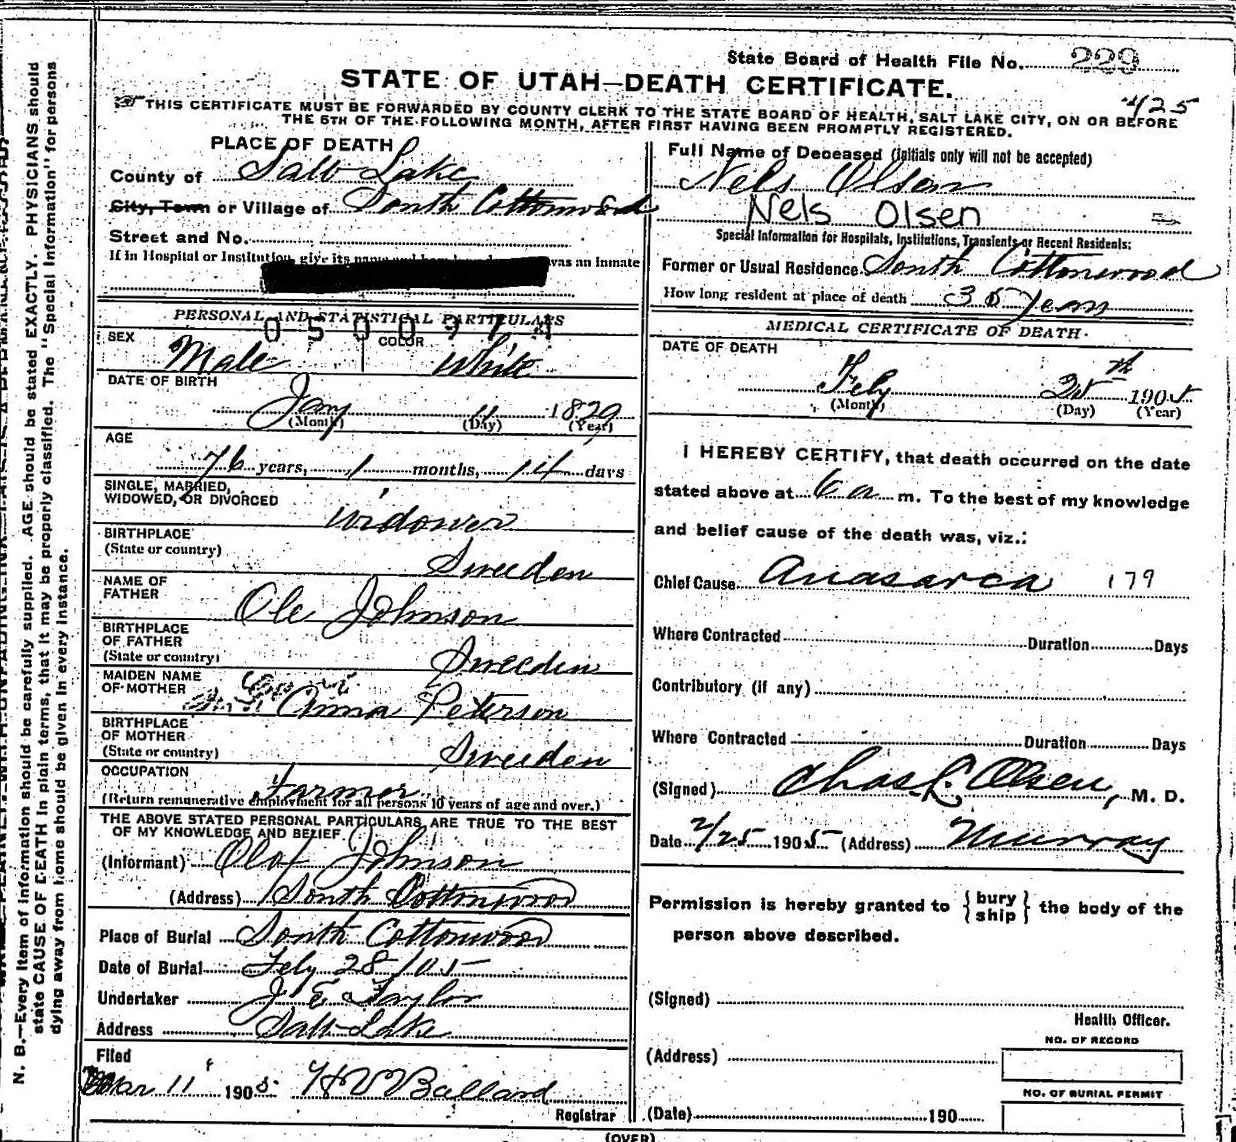 State Board of Health File No. 229
STATE OF UTAH—DEATH CERTIFICATE.
425
THIS CERTIFICATE MUST BE FORWARDED BY COUNTY CLERK TO THE STATE BOARD OF HEALTH, SALT LAKE CITY, ON OR BEFORE
THE 5TH OF THE FOLLOWING MONTH, AFTER FIRST HAVING BEEN PROMPTLY REGISTERED.
PLACE OF DEATH
County of Salt Lake
City, Town or Village of South Cottonwood
Street and No.
If in Hospital or Institution, give its name and was an inmate
PERSONAL AND STATISTICAL PARTICULARS
0500974
SEX Male COLOR White
DATE OF BIRTH
Jany 11 1829
(Month) (Day) (Year)
AGE
76 years, 1 months, 14 days
SINGLE, MARRIED,
WIDOWED, OR DIVORCED
Widower
BIRTHPLACE
(State or country)
Sweeden
NAME OF
FATHER
Ole Johnson
BIRTHPLACE
OF FATHER
(State or country)
Sweeden
MAIDEN NAME
OF MOTHER
Anna Peterson
BIRTHPLACE
OF MOTHER
(State or country)
Sweeden
OCCUPATION
Farmer
(Return remunerative employment for all persons 10 years of age and over.)
THE ABOVE STATED PERSONAL PARTICULARS ARE TRUE TO THE BEST
OF MY KNOWLEDGE AND BELIEF
(Informant) Olof Johnson
(Address) South Cottonwood
Place of Burial South Cottonwood
Date of Burial Feby 28/05
Undertaker J E Taylor
Address Salt Lake
Filed
Mar 11 1905 H V Ballard
Registrar
Full Name of Deceased (initials only will not be accepted)
Nels Olsen
Nels Olsen
Special Information for Hospitals, Institutions, Transients or Recent Residents:
Former or Usual Residence South Cottonwood
How long resident at place of death 35 Years
MEDICAL CERTIFICATE OF DEATH
DATE OF DEATH
Feby 25th 1905
(Month) (Day) (Year)
I HEREBY CERTIFY, that death occurred on the date
stated above at 6 a m. To the best of my knowledge
and belief cause of the death was, viz.:
Chief Cause Anasarca 179
Where Contracted Duration Days
Contributory (if any)
Where Contracted Duration Days
(Signed) Chas L Olsen, M. D.
Date 2/25 1905 (Address) Murray
Permission is hereby granted to {bury ship} the body of the
person above described.
(Signed)
Health Officer.
NO. OF RECORD
(Address)
NO. OF BURIAL PERMIT
(Date) 190
(OVER)
N. B.—Every item of information should be carefully supplied. AGE should be stated EXACTLY. PHYSICIANS should
state CAUSE OF DEATH in plain terms, that it may be properly classified. The "Special Information" for persons
dying away from home should be given in every instance.